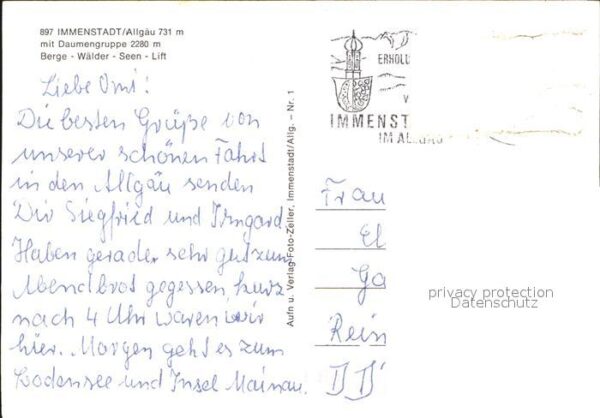 897 IMMENSTADT/Allgäu 731 m
mit Daumengruppe 2280 m
Berge - Wälder - Seen - Lift
Liebe Omi!
Die besten Grüße von
unserer schönen Fahrt
in den Allgäu senden
Dir Siegfried und Irmgard
Haben gerade sehr gut zum
Abendbrot gegessen, kurz
nach 4 Uhr waren wir
hier. Morgen geht es zum
Bodensee und Insel Mainau.
Aufn u. Verlag Foto-Zeiler, Immenstadt/Allg. - Nr. 1
ERHOLU
V
IMMENST
IM ALLGÄU
Frau
El
Ga
Rein
privacy protection
Datenschutz